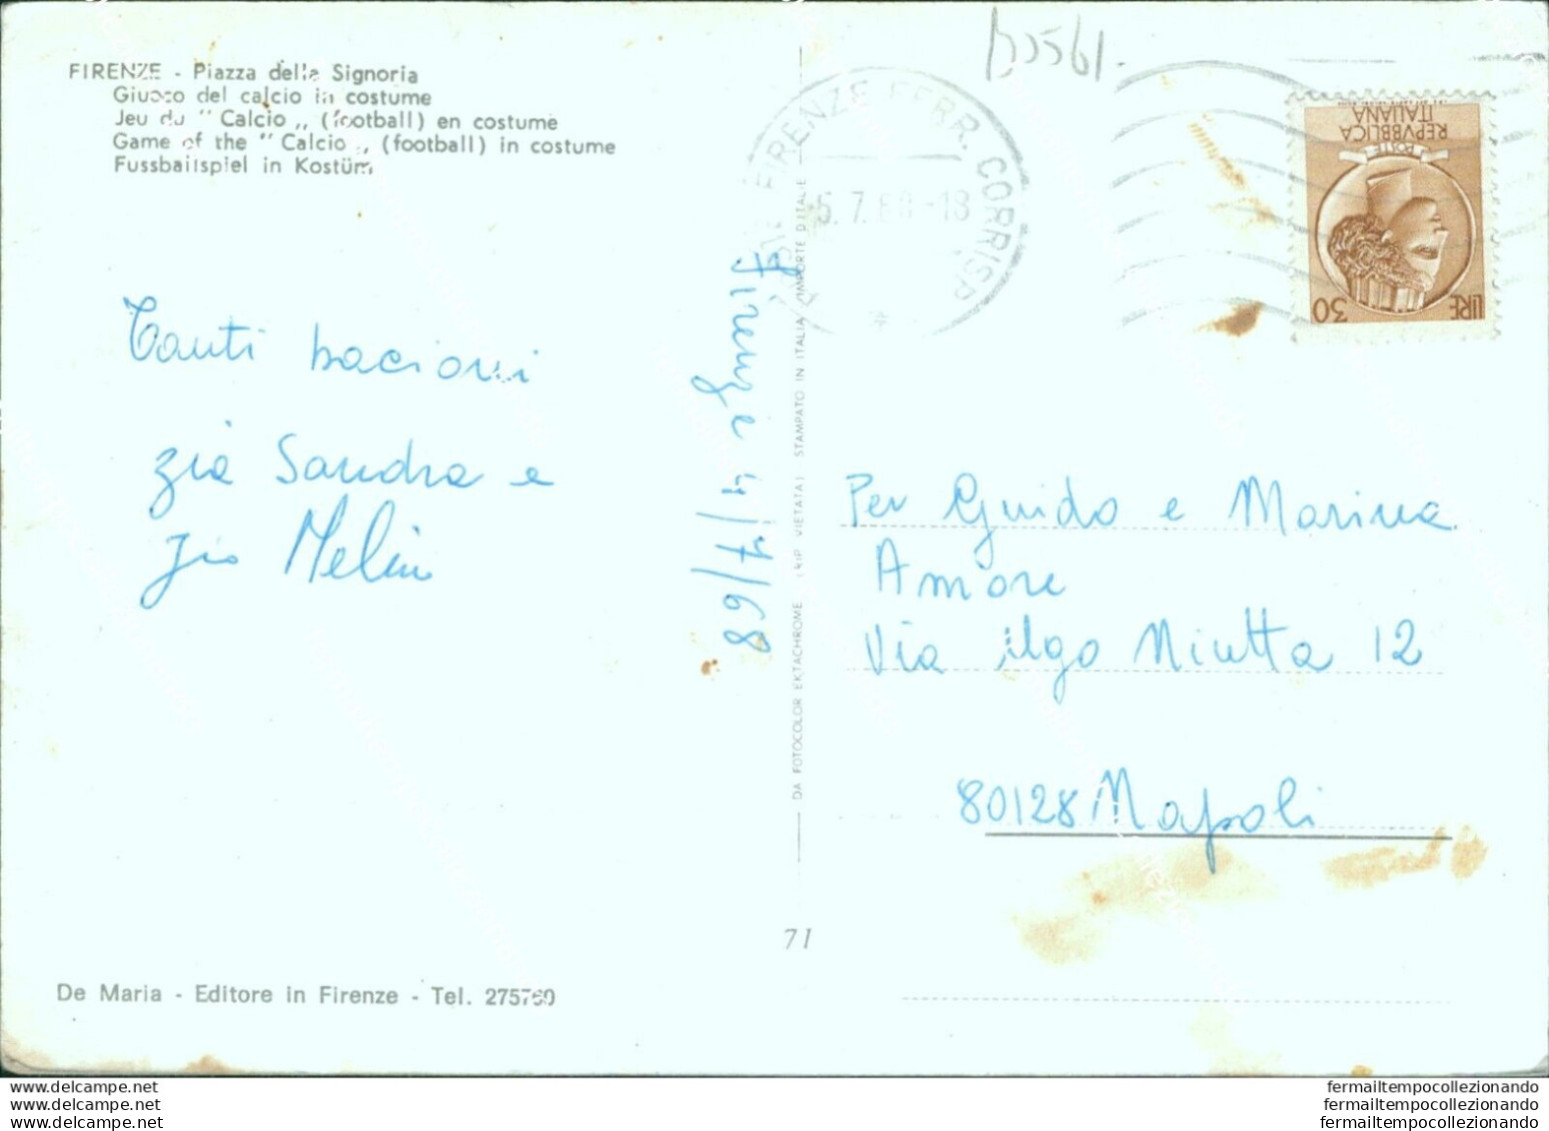 FIRENZE - Piazza della Signoria
Giuoco del calcio in costume
Jeu du " Calcio „ (football) en costume
Game of the " Calcio „ (football) in costume
Fussballspiel in Kostüm
Tanti bacioni
zia Sandra e
zio Melin
Firenze 4/7/68
DA FOTOCOLOR EKTACHROME (RIP. VIETATA) STAMPATO IN ITALIA IMPORTE D'ITALIE
71
De Maria - Editore in Firenze - Tel. 275760
B5561.
FIRENZE FERR. CORRISP.
5.7.68-18
REPVBBLICA
ITALIANA
POSTE
LIRE 30
Per Guido e Marina
Amore
Via Ugo Niutta 12
80128 Napoli
www.delcampe.net
www.delcampe.net
www.delcampe.net
fermailtempocollezionando
fermailtempocollezionando
fermailtempocollezionando